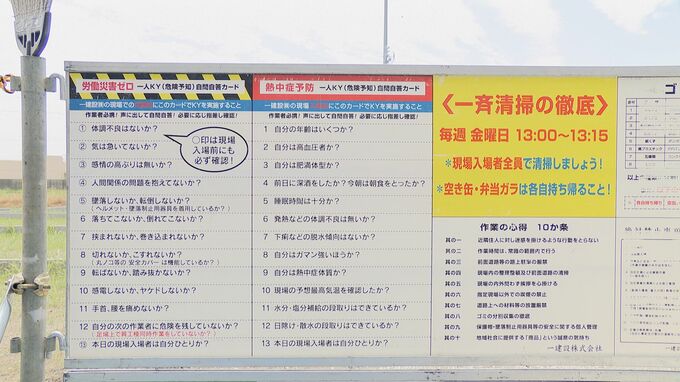 労働災害ゼロ 一人KY(危険予知)自問自答カード
一建設㈱の現場での にこのカードでKYを実施すること
作業者必携!声に出して自問自答!必要に応じ指差し確認!
① 体調不良はないか?
② 気は急いてないか?
③ 感情の高ぶりは無いか?
④ 人間関係の問題を抱えてないか?
⑤ 墜落しないか、転倒しないか?
(ヘルメット・墜落制止用器具を着用しているか?)
6 落ちてこないか、倒れてこないか?
7 挟まれないか、巻き込まれないか?
8 切れないか、こすれないか?
(丸ノコ等の安全カバーは機能しているか?)
9 転ばないか、踏み抜かないか?
10 感電しないか、ヤケドしないか?
11 手首、腰を痛めないか?
12 自分の次の作業者に危険を残していないか?
(足場上で異工種同時作業をしていないか?)
⑬ 本日の現場入場者は自分ひとりか?
○印は現場
入場前にも
必ず確認!
熱中症予防 一人KY(危険予知)自問自答カード
一建設㈱の現場 にこのカードでKYを実施すること
作業者必携!声に出して自問自答!必要に応じ指差し確認!
1 自分の年齢はいくつか?
2 自分は高血圧者か?
3 自分は肥満体型か?
4 前日に深酒をしたか?今朝は朝食をとったか?
5 睡眠時間は十分か?
6 発熱などの体調不良は無いか?
7 下痢などの脱水傾向はないか?
8 自分はガマン強いほうか?
9 自分は熱中症体質か?
10 現場の予想最高気温を確認したか?
11 水分・塩分補給の段取りはできているか?
12 日除け・散水の段取りはできているか?
13 本日の現場入場者は自分ひとりか?
《一斉清掃の徹底》
毎週 金曜日 13:00~13:15
*現場入場者全員で清掃しましょう!
*空き缶・弁当ガラは各自持ち帰ること!
作業の心得 10か条
其の一 近隣住人に対し迷惑を掛けるような行動をとらない
其の二 作業時間は、常識の範囲内で行う
其の三 前面道路等の路上駐車の厳禁
其の四 現場内の整理整頓及び前面道路の清掃
其の五 現場の内外問わず挨拶を心掛ける
其の六 指定現場以外での喫煙の禁止
其の七 道路上への材料等の放置厳禁
其の八 ゴミの分別収集の徹底
其の九 保護帽・墜落制止用器具等の安全に関する個人管理
其の十 地域社会に提供する「商品」という誠意の気持ち
一建設株式会社
ゴ